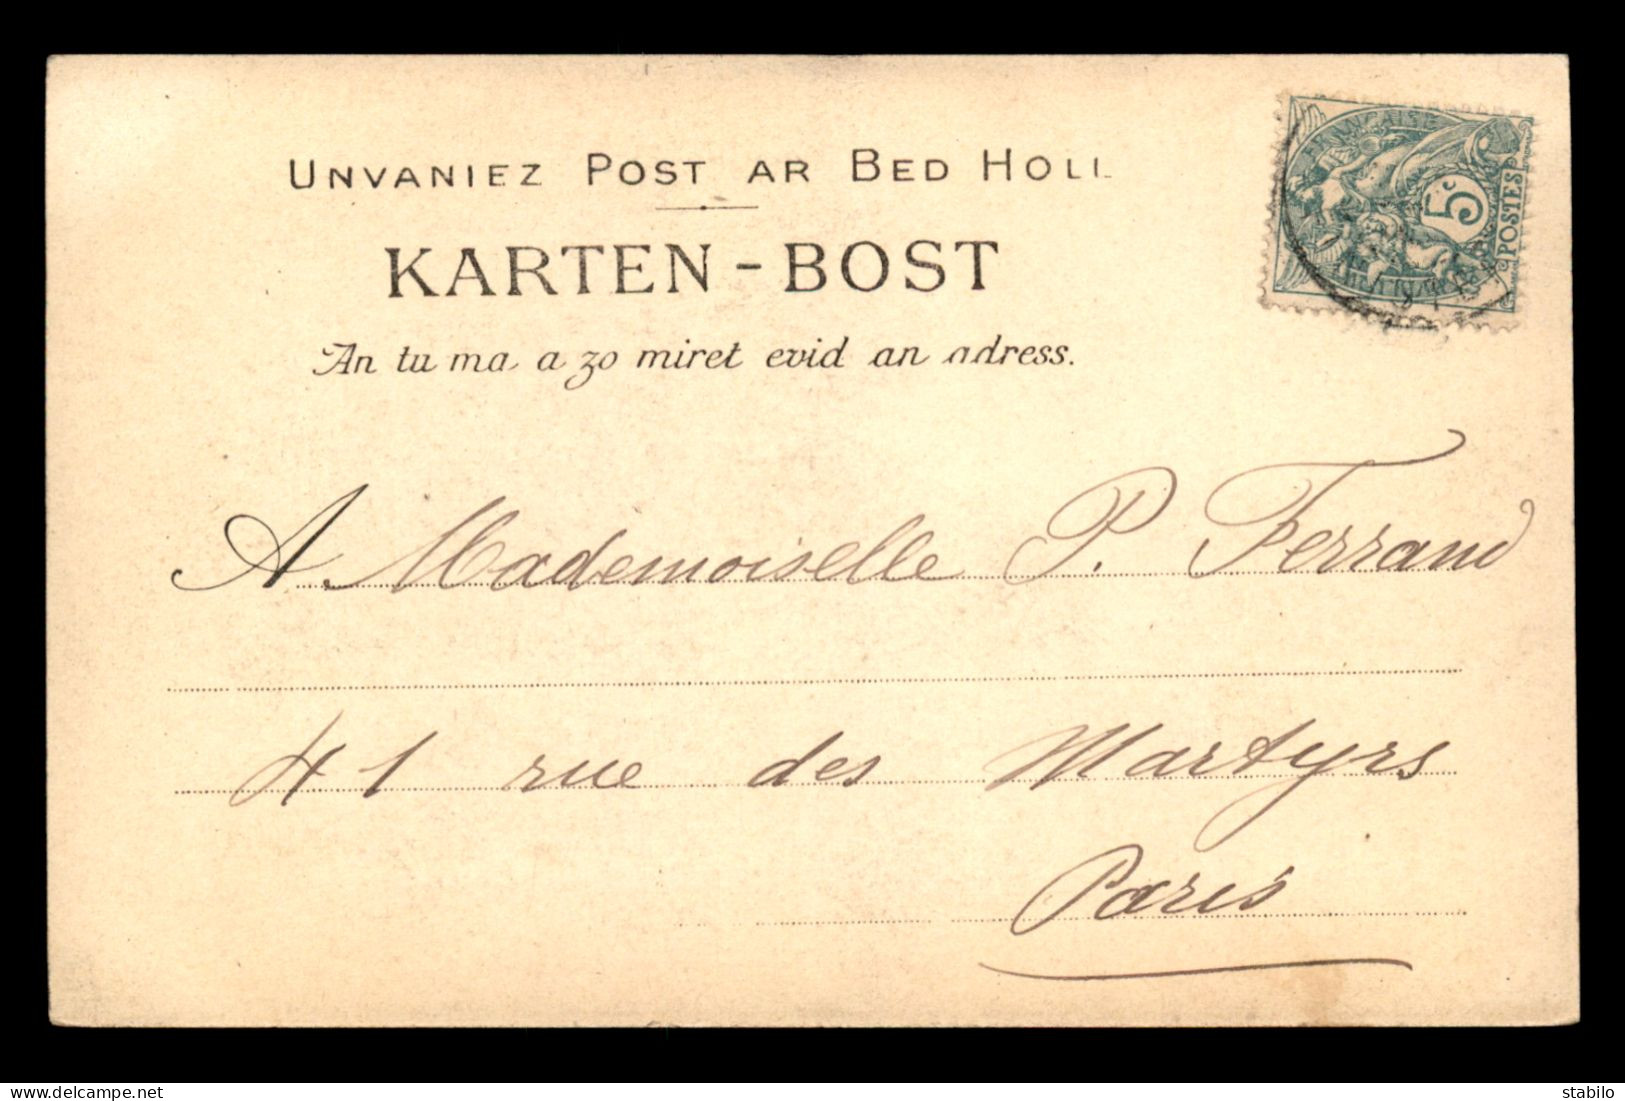 UNVANIEZ POST AR BED HOLL
KARTEN-BOST
An tu ma a zo miret evid an adress.
5c
POSTES
A Mademoiselle P. Ferrand
41 rue des Martyrs
Paris
stabilo